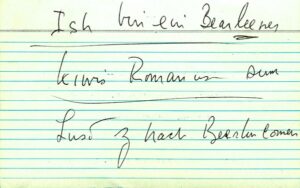 Ish bin ein Bearleener
kiwis Romanus sum
Lusd z nach Bearlin comen